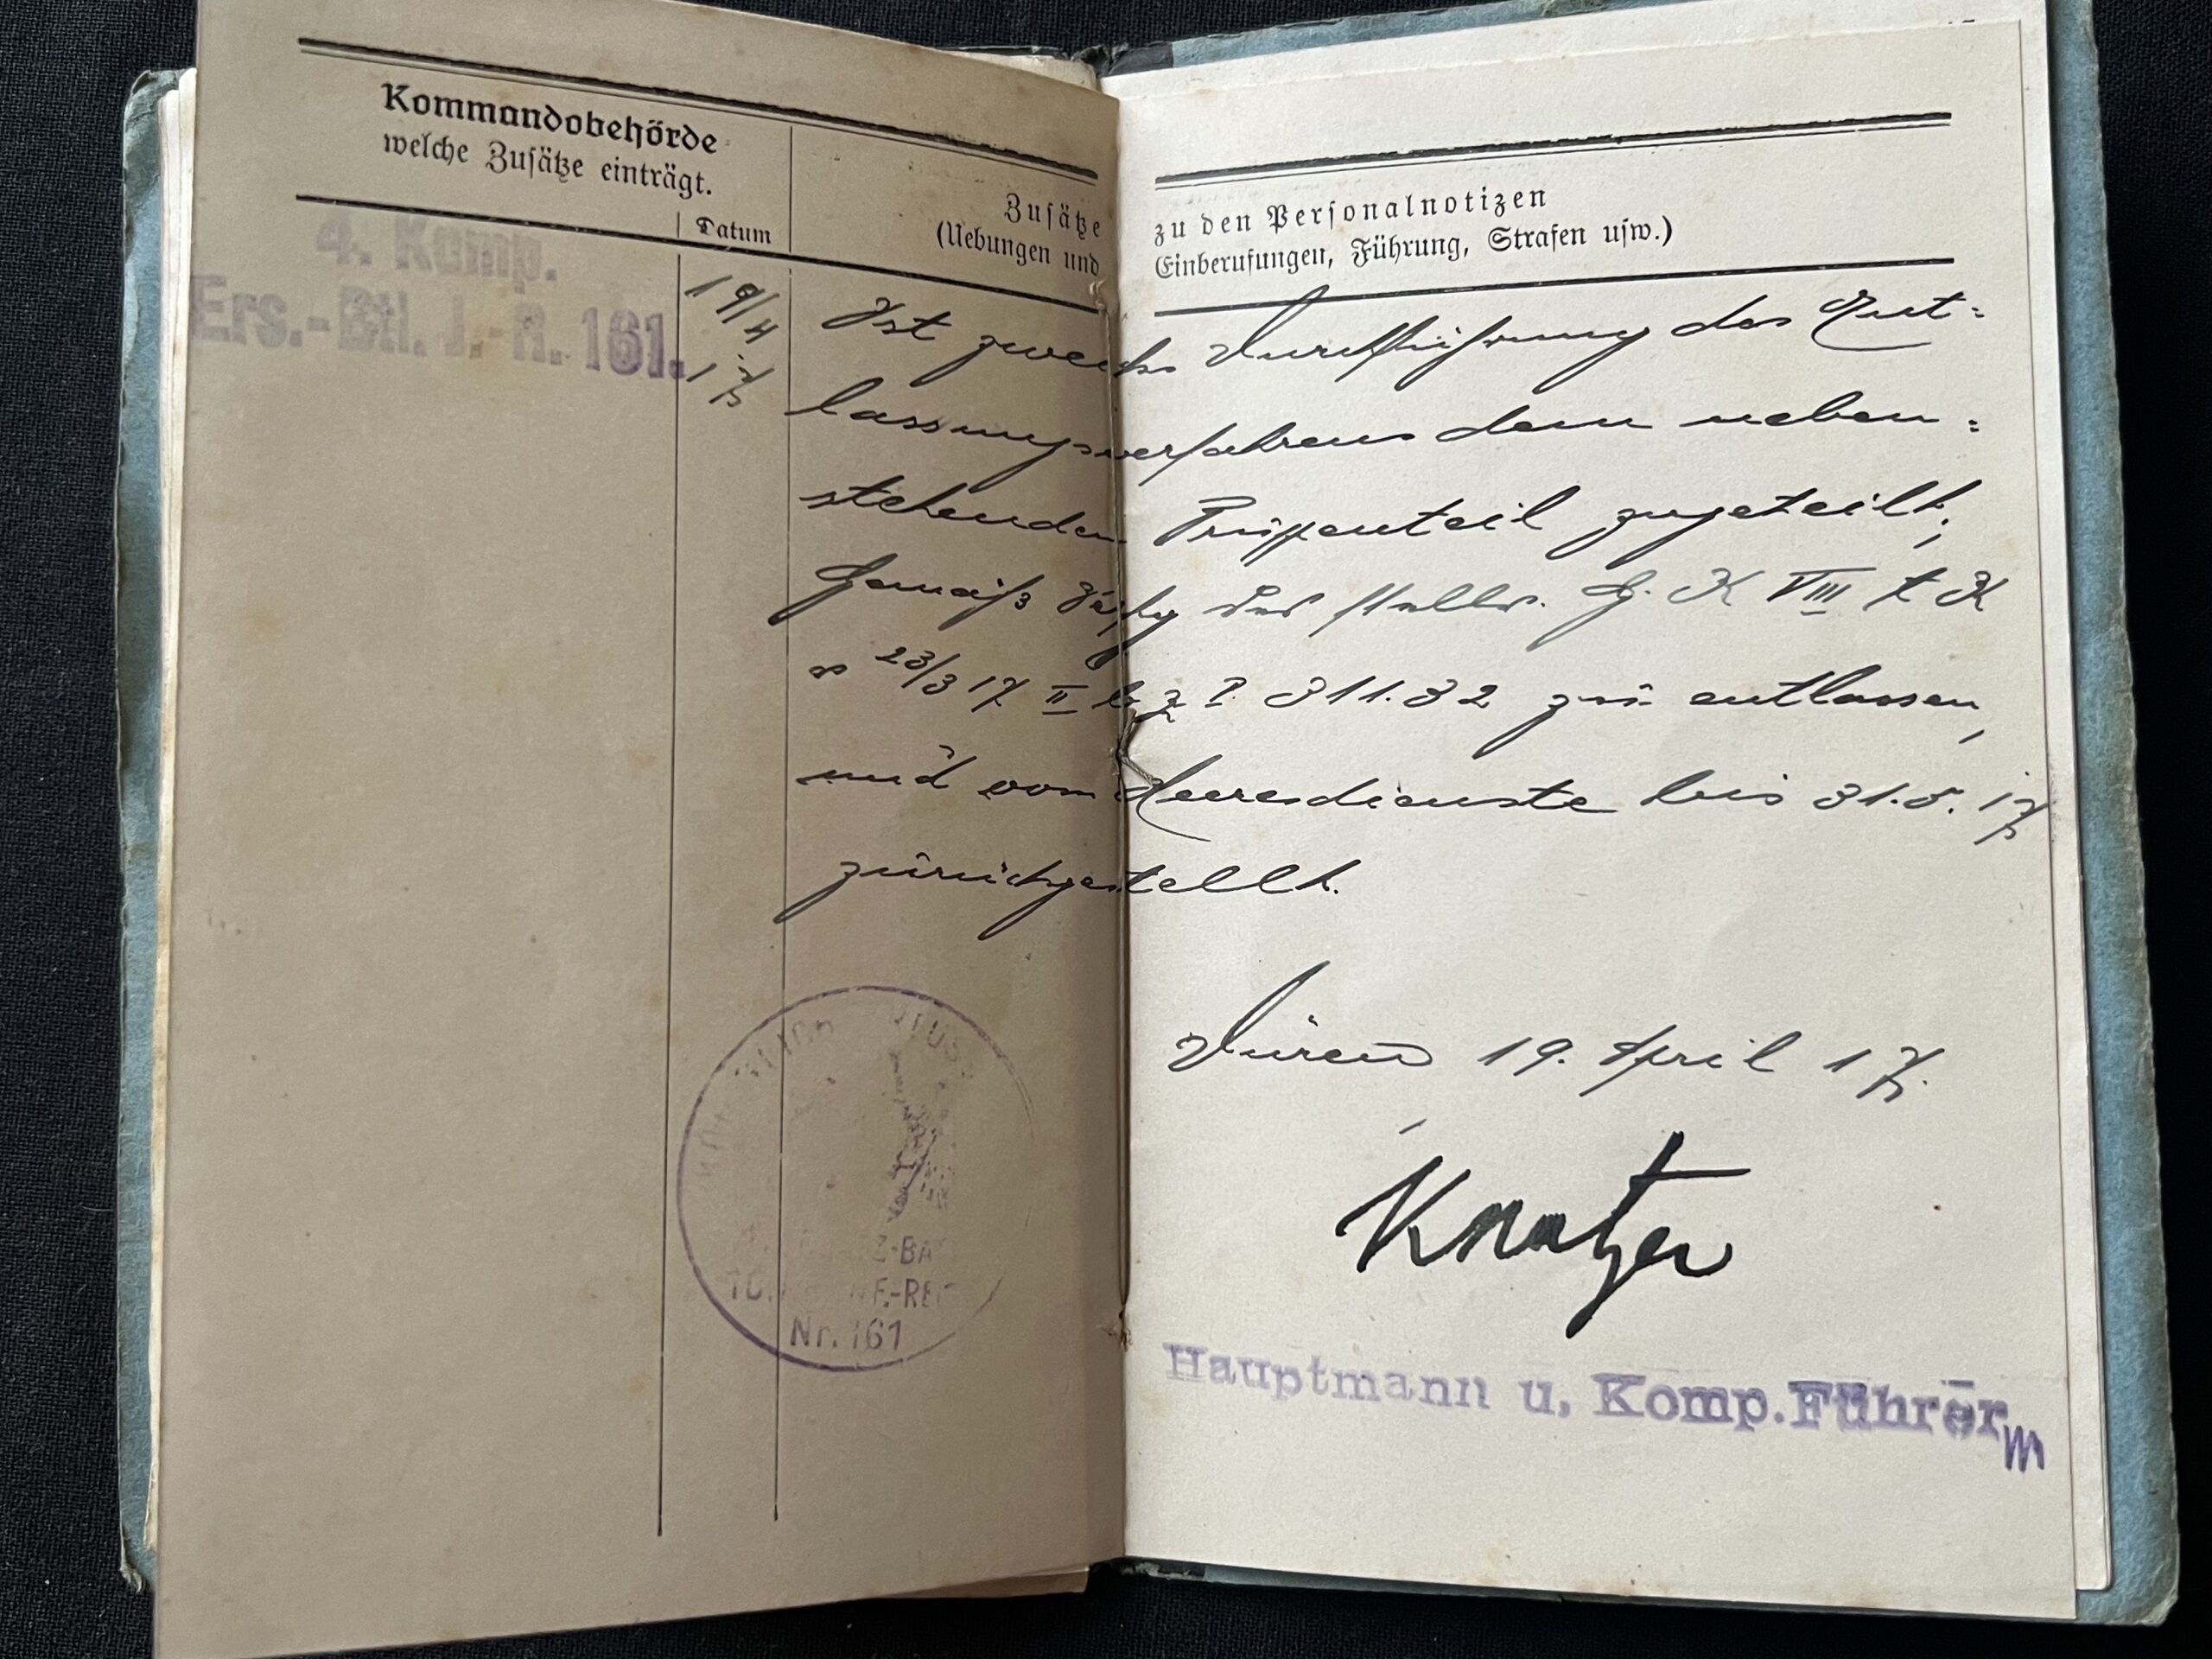 Kommandobehörde
welche Zusätze einträgt.
Datum
Zusätze zu den Personalnotizen
(Uebungen und Einberufungen, Führung, Strafen usw.)
4. Komp.
Ers.-Btl. J.-R. 161.
19/4
17
Ist zwecks Durchführung des Ent-
lassungsverfahrens dem neben-
stehenden Truppenteil zugeteilt,
Gemäß Vfg des stellv. G. K VIII A K
v 23/3 17 II 311.32 entlassen,
und vom Heeresdienste bis 31.5.17
zurückgestellt.
Düren 19. April 17.
Knatzer
Hauptmann u. Komp.Führer
Nr. 161